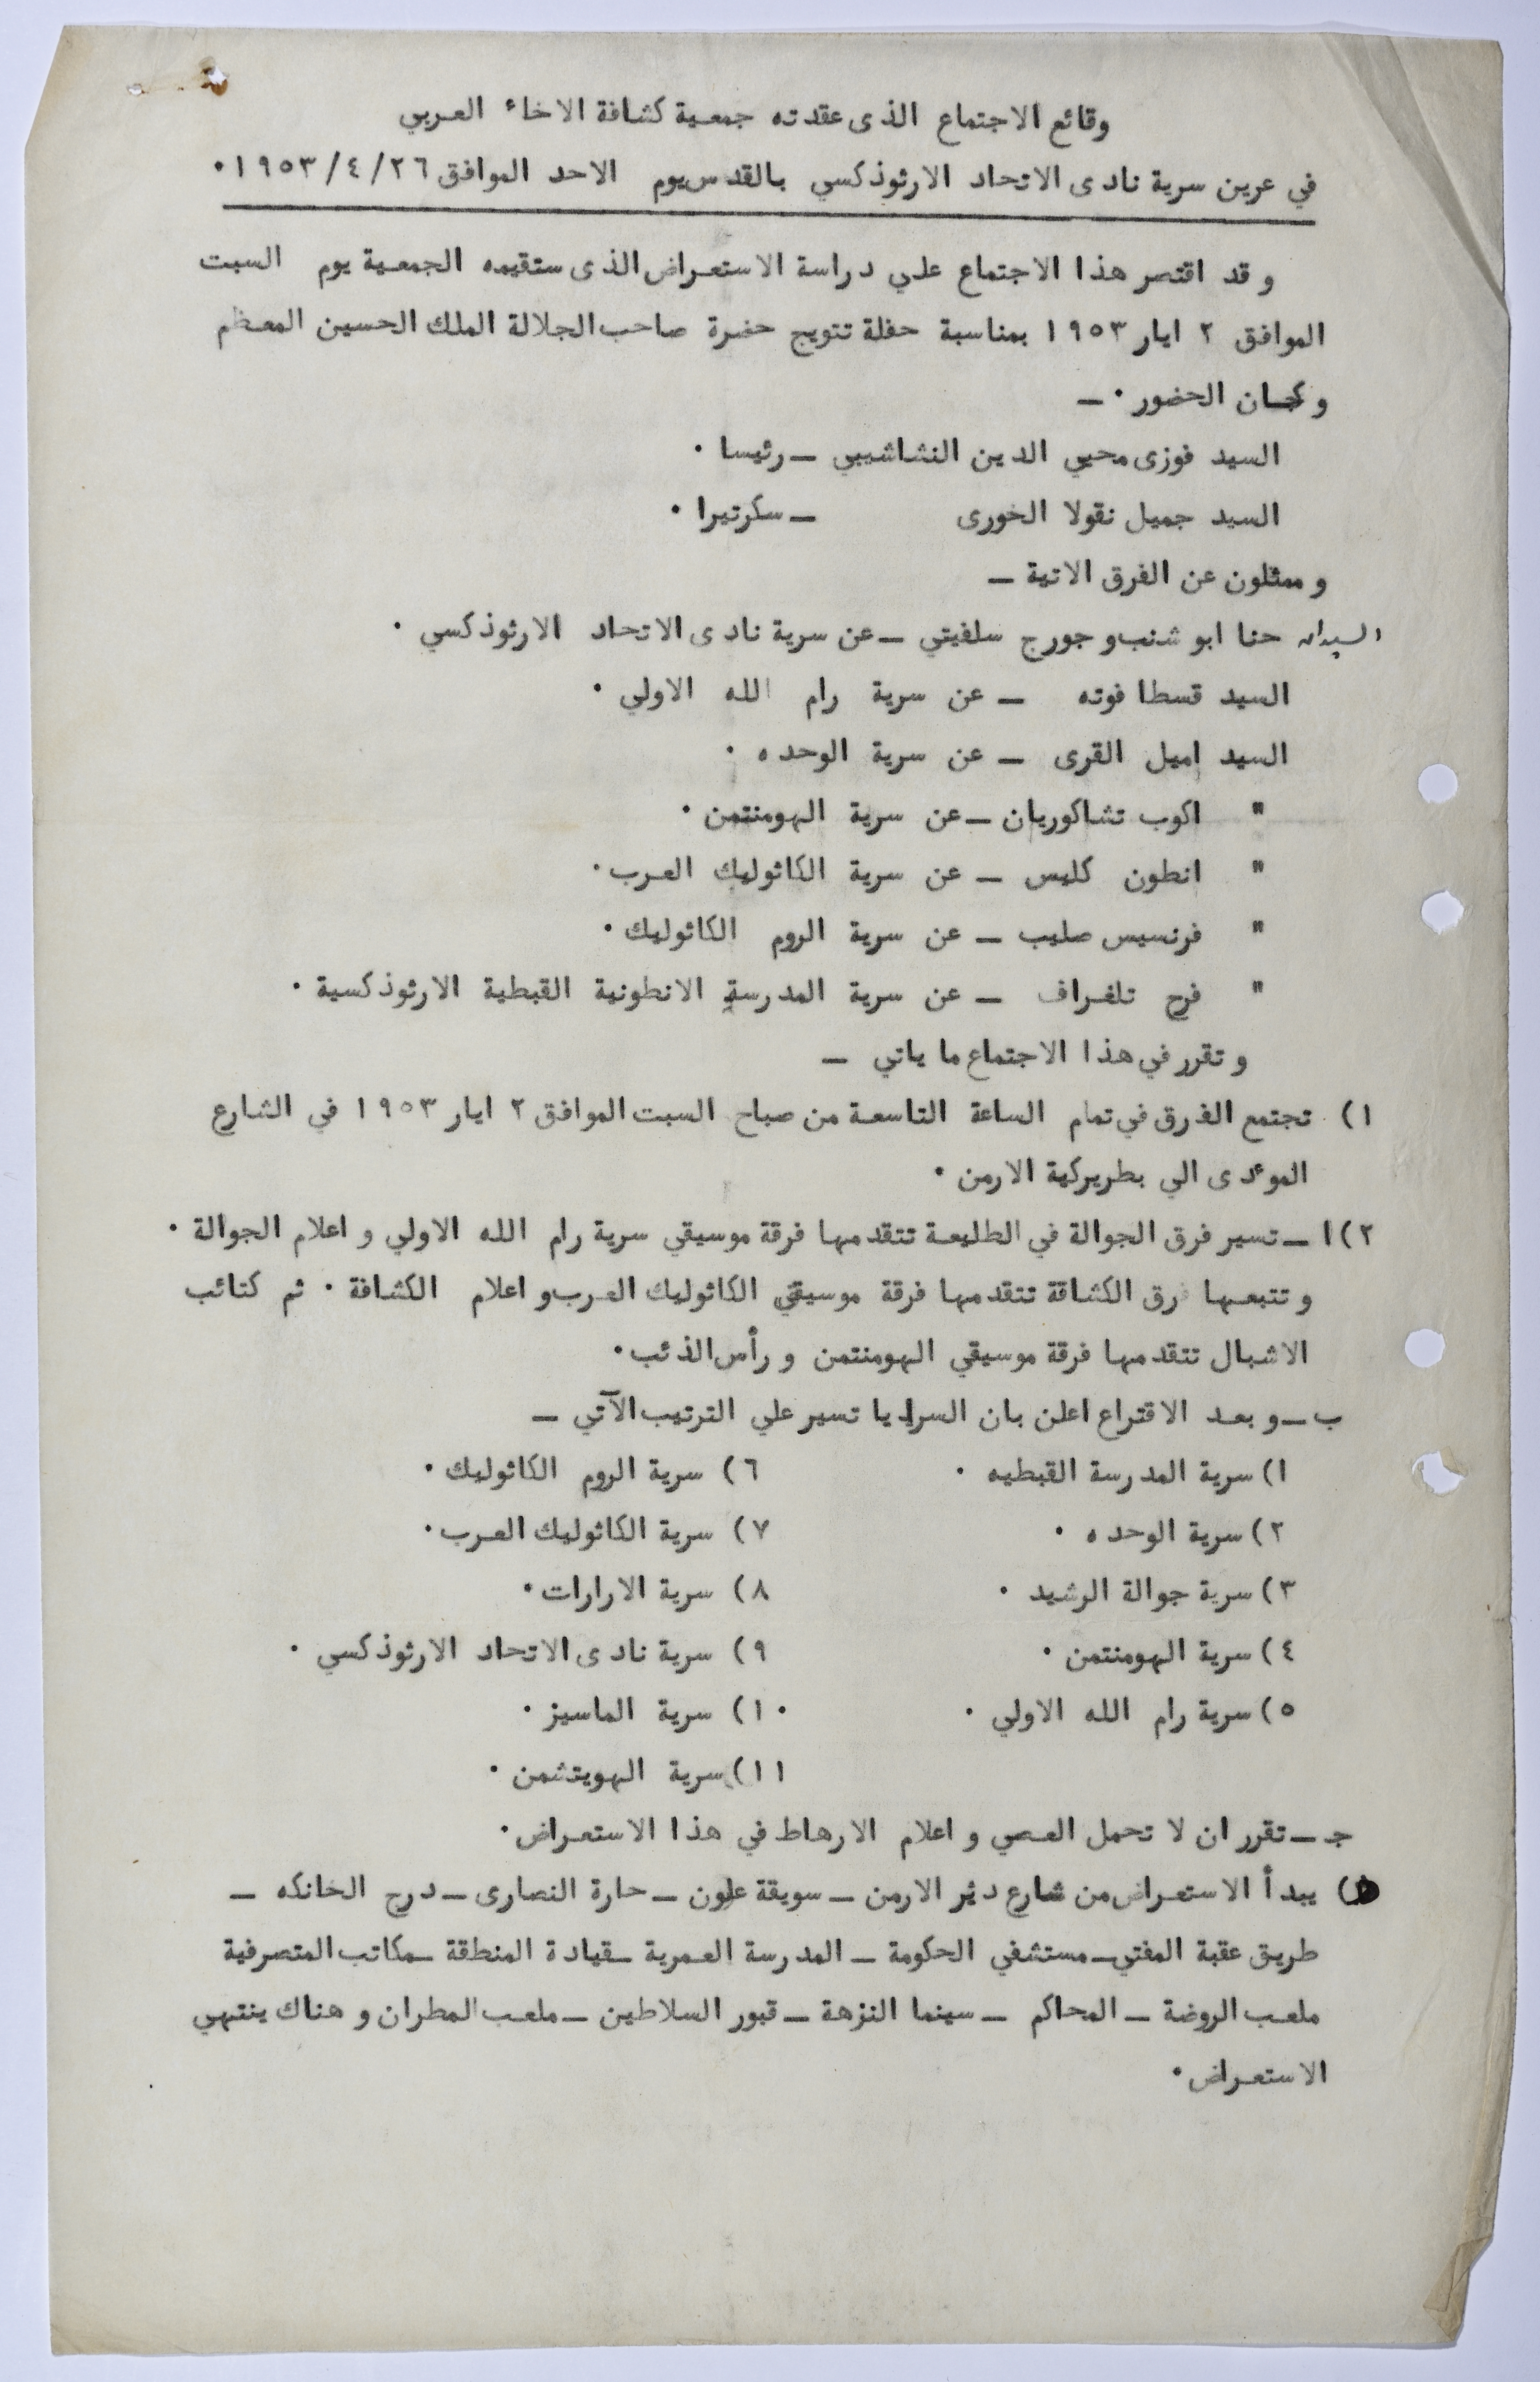 وقائع الاجتماع الذى عقدته جمعية كشافة الاخاء العربي
في عرين سرية نادى الاتحاد الارثوذكسي بالقدس يوم الاحد الموافق ٢٦/٤/١٩٥٣٠
و قد اقتصر هذا الاجتماع علي دراسة الاستعراض الذى ستقيمه الجمعية يوم السبت
الموافق ٢ ايار ١٩٥٣ بمناسبة حفلة تتويج حضرة صاحب الجلالة الملك الحسين المعظم
و كان الحضور ٠ ــ
السيد فوزى محيي الدين النشاشيبي ــ رئيسا ٠
السيد جميل نقولا الخورى ــ سكرتيرا ٠
و ممثلون عن الفرق الاتية ــ
السيدان حنا ابو شنب و جورج سلفيتي ــ عن سرية نادى الاتحاد الارثوذكسي ٠
السيد قسطا فوته ــ عن سرية رام الله الاولي ٠
السيد اميل القرى ــ عن سرية الوحده ٠
" اكوب تشاكوريان ــ عن سرية الهومنتمن ٠
" انطون كليس ــ عن سرية الكاثوليك العرب ٠
" فرنسيس صليب ــ عن سرية الروم الكاثوليك ٠
" فرح تلغراف ــ عن سرية المدرسة الانطونية القبطية الارثوذكسية ٠
و تقرر في هذا الاجتماع ما ياتي ــ
١) تجتمع الفرق في تمام الساعة التاسعة من صباح السبت الموافق ٢ ايار ١٩٥٣ في الشارع
الموءدى الي بطريركية الارمن ٠
٢) ا ــ تسير فرق الجوالة في الطليعة تتقدمها فرقة موسيقي سرية رام الله الاولي و اعلام الجوالة ٠
و تتبعها فرق الكشافة تتقدمها فرقة موسيقي الكاثوليك العرب و اعلام الكشافة ٠ ثم كتائب
الاشبال تتقدمها فرقة موسيقي الهومنتمن و رأس الذئب ٠
ب ــ و بعد الاقتراع اعلن بان السرايا تسير علي الترتيب الآتي ــ
١) سرية المدرسة القبطيه ٠ ٦) سرية الروم الكاثوليك ٠
٢) سرية الوحده ٠ ٧) سرية الكاثوليك العرب ٠
٣) سرية جوالة الرشيد ٠ ٨) سرية الارارات ٠
٤) سرية الهومنتمن ٠ ٩) سرية نادى الاتحاد الارثوذكسي ٠
٥) سرية رام الله الاولي ٠ ١٠) سرية الماسيز ٠
١١) سرية الهويتشمن ٠
جـ ــ تقرر ان لا تحمل العصي و اعلام الارهاط في هذا الاستعراض ٠
) يبدأ الاستعراض من شارع دير الارمن ــ سويقة علون ــ حارة النصارى ــ درج الخانكه ــ
طريق عقبة المفتي ــ مستشفي الحكومة ــ المدرسة العمرية ــ قيادة المنطقة ــ مكاتب المتصرفية
ملعب الروضة ــ المحاكم ــ سينما النزهة ــ قبور السلاطين ــ ملعب المطران و هناك ينتهي
الاستعراض ٠